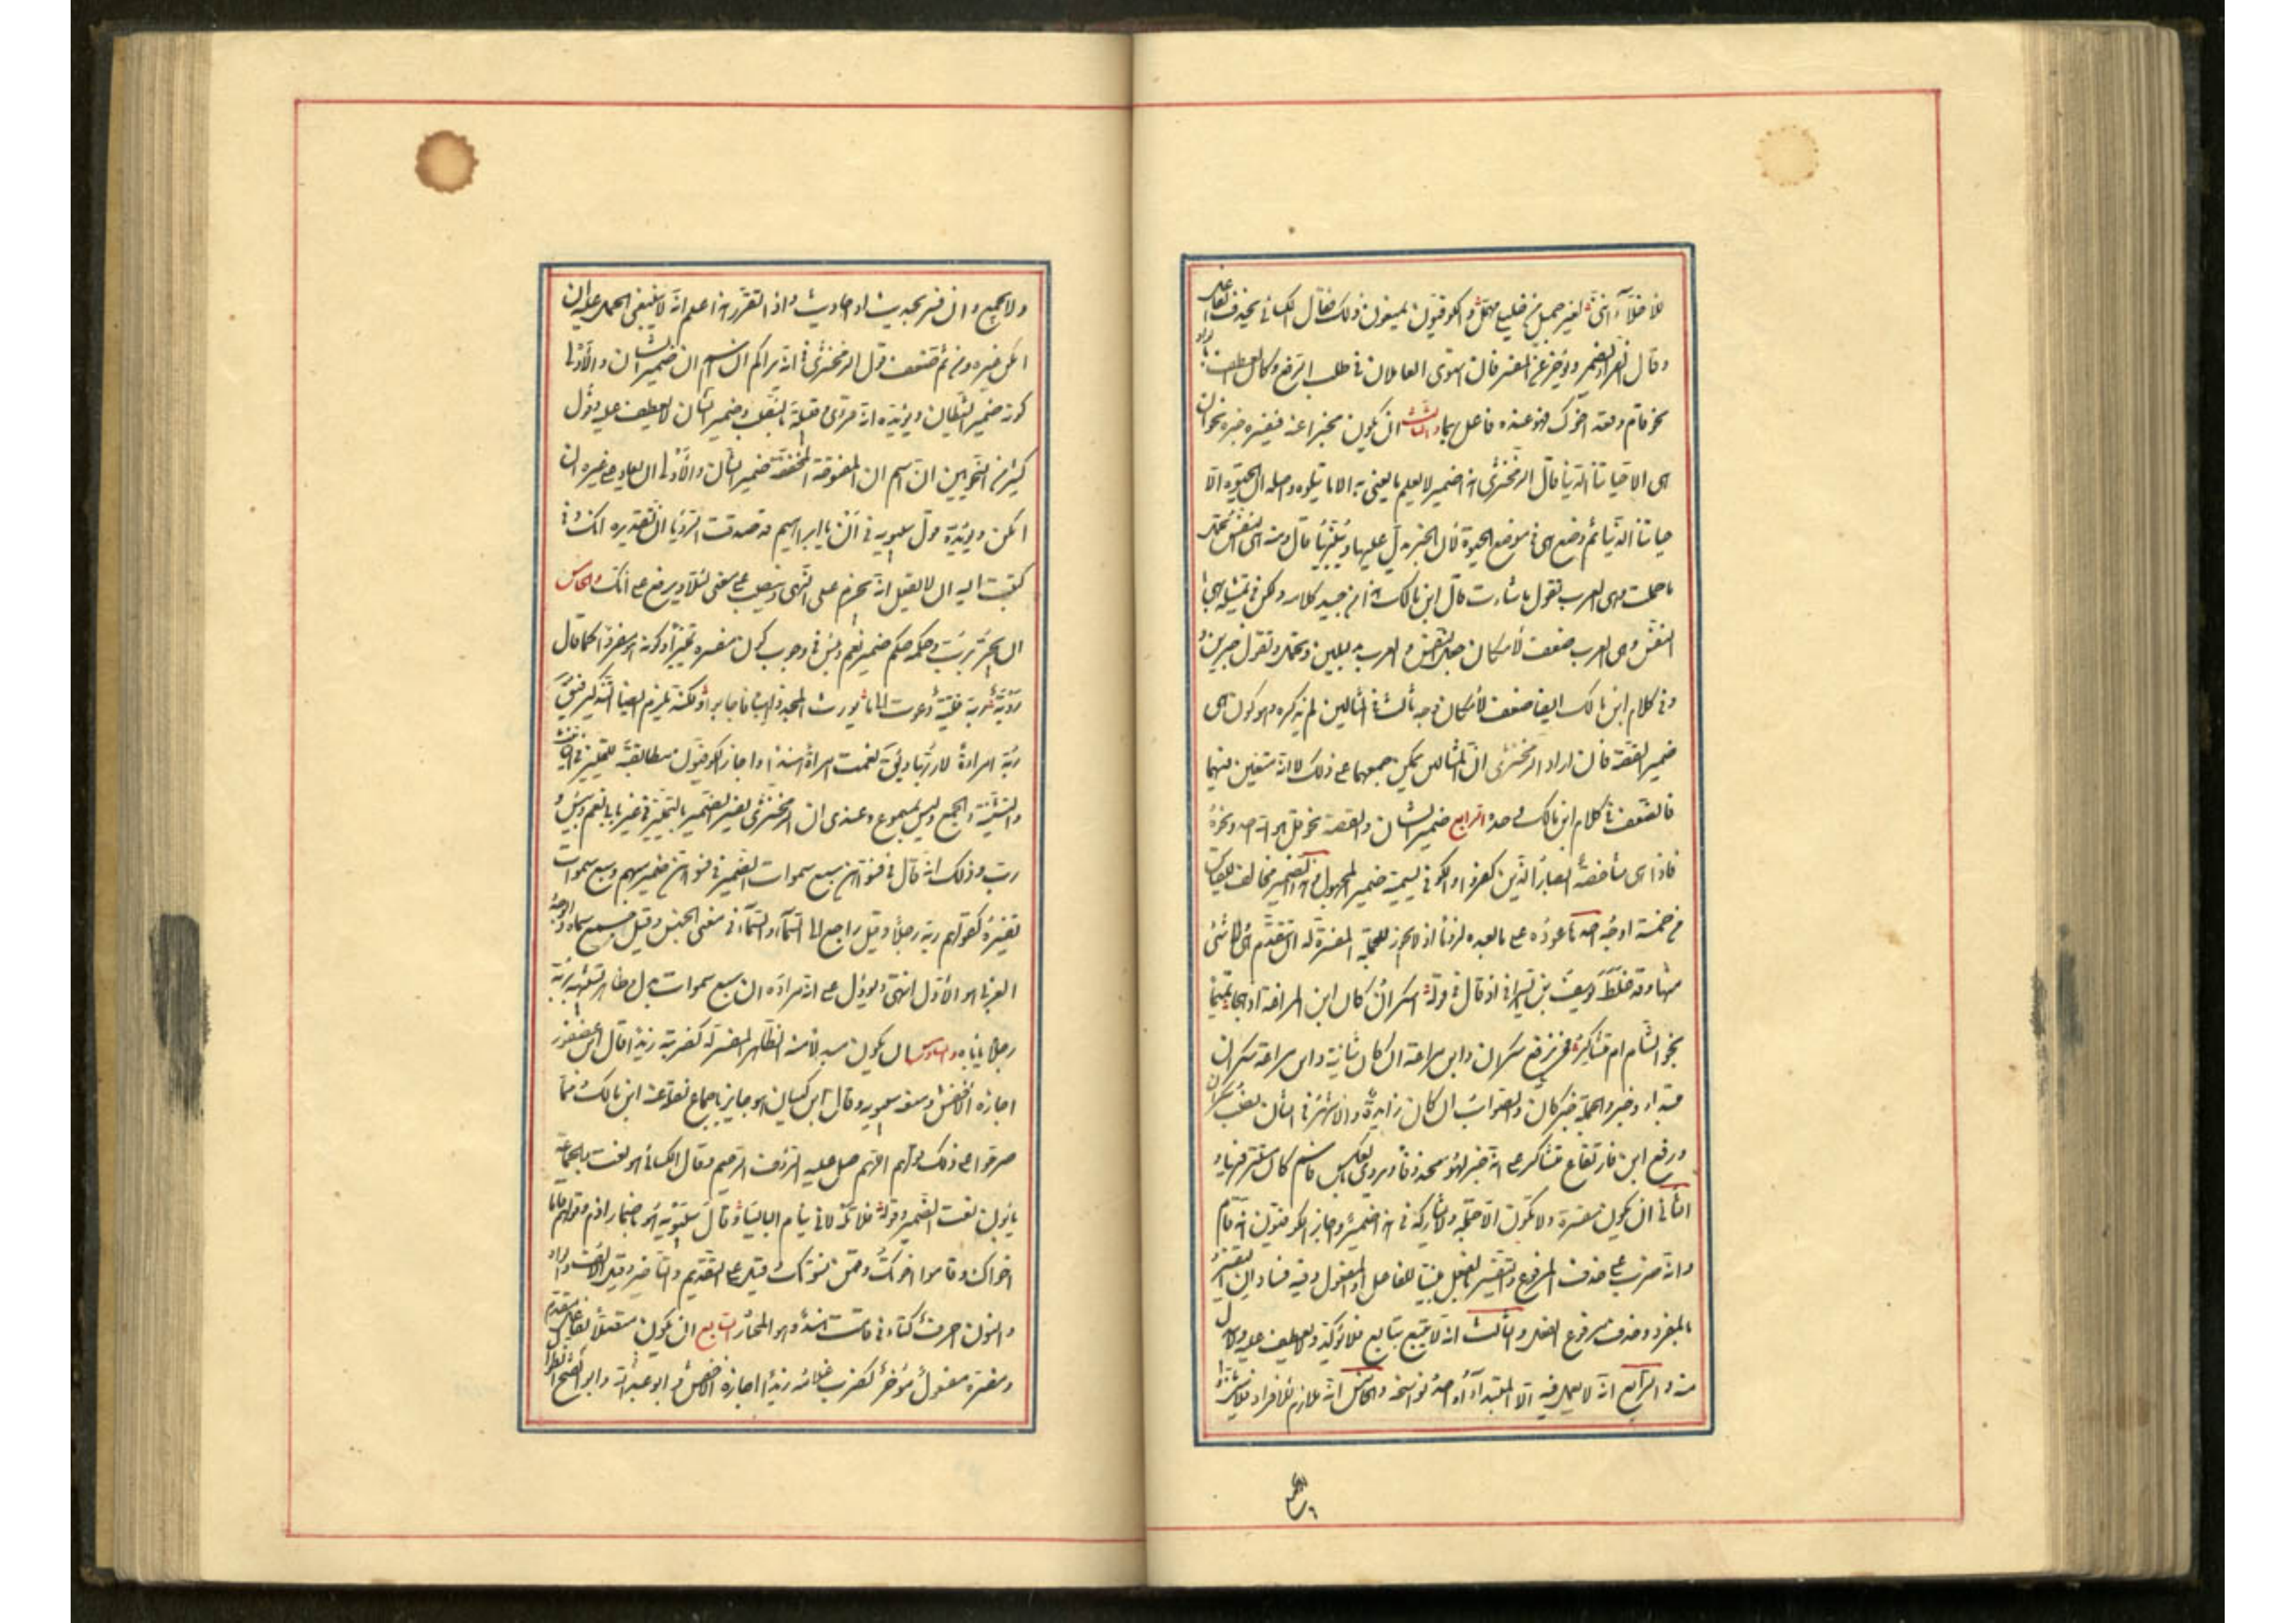 للأخلاء انني لغير جميل من خليلي مهمل والكوفيون يمنعون ذلك فقال الكسائي يحذف الفاعل
وقال الفراء يضمر ويؤخر عن المفسر فان استوى العاملان في طلب الرفع وكان العطف بالواو
نحو قام وقعد اخوك فهو عنده فاعل بهما والثالث ان يكون مخبرا عنه فيفسره خبره نحو ان
هي الا حياتنا الدنيا قال الزمخشري هذا ضمير لا يعلم ما يعني به الا بما يتلوه واصله ان الحيوة الا
حياتنا الدنيا ثم وضع هي في موضع الحيوة لان الخبر يدل عليها ويبينها قال ومنه هي النفس تحمل
ما حملت وهي العرب تقول ما شاءت قال ابن مالك وهذا من جيد كلامه ولكن في تمثيله بهي
النفس وهي العرب ضعف لامكان جعل النفس والعرب بدلين وتحمل وتقول خبرين و
في كلام ابن مالك ايضا ضعف لامكان وجه ثالث في المثالين لم يذكره وهو كون هي
ضمير القصة فان اراد الزمخشري ان المثالين يمكن حملهما على ذلك لا انه متعين فيهما
فالضعف في كلام ابن مالك وحده الرابع ضمير الشان والقصة نحو قل هو الله احد ونحو
فاذا هي شاخصة ابصار الذين كفروا والكوفي يسميه ضمير المجهول وهذا الضمير مخالف للقياس
من خمسة اوجه احدها عوده على ما بعده لزوما اذ لا يجوز للجملة المفسرة له ان تتقدم هي ولا شئ
منها وقد غلط يوسف بن السيرافي اذ قال في قوله اسكران كان ابن المراغة اذ هجا تميما
بجو الشام ام متساكر فمن رفع سكران وابن مراغة ان كان شانية وابن مراغة سكران
مبتدا وخبر والجملة خبر كان والصواب ان كان زايدة والاشهر في انشاده نصب سكران
ورفع ابن فارتفاع متساكر على انه خبر لهو محذوفا ويروى بالعكس فاسم كان مستتر فيها و
الثاني ان يكون مفسره ولا تكون الا جملة ولا يشاركه في هذا ضمير واجاز الكوفيون انه قام
وانه ضرب على حذف المرفوع والتفسير بالفعل مبنيا للفاعل او المفعول وفيه فسادان التفسير
بالمفرد وحذف مرفوع الفعل والثالث انه لا يتبع بتابع فلا يؤكد ولا يعطف عليه ولا يبدل
منه والرابع انه لا يعمل فيه الا الابتداء او احد نواسخه والخامس انه ملازم للافراد فلا يثنى
ولا يجمع وان فسر بحديثين او احاديث واذا تقرر هذا علم انه لا ينبغي الحمل عليه ان
امكن غيره ومن ثم ضعف قول الزمخشري في انه يراكم ان اسم ان ضمير الشان والاولى
كونه ضمير الشيطان ويؤيده انه قرئ وقبيله بالنصب وضمير الشان لا يعطف عليه وقول
كثير من النحويين ان اسم ان المفتوحة المخففة ضمير الشان والاولى ان يعاد على غيره ان
امكن ويؤيده قول سيبويه في ان يا ابراهيم قد صدقت الرؤيا ان تقديره انك وفي
كتبت اليه ان لا يفعل انه يجزم على النهي وينصب على معنى لئلا ويرفع على انك والخامس
ان يجر برب وحكمه حكم ضمير نعم وبئس في وجوب كون مفسره تمييزا وكونه هو مفردا كما قال
ربه فتية دعوت الى ما يورث المجد دائبا فاجابوا ولكنه يلزم ايضا التذكير فيقال
ربه امراة لا ربها ويقال نعمت امراة هند واجاز الكوفيون مطابقته للتمييز في التانيث
والتثنية والجمع وليس بمسموع وعندي ان الزمخشري يفسر الضمير بالتمييز في غير بابي نعم وبئس و
رب وذلك انه قال في فسواهن سبع سموات الضمير في فسواهن ضمير مبهم وسبع سموات
تفسيره كقولهم ربه رجلا وقيل راجع الى السماء والسماء في معنى الجنس وقيل جمع سماءة والوجه
العربي هو الاول انتهى ويؤول على ان مراده ان سبع سموات بدل وظاهر تشبيهه بربه
رجلا ياباه والسادس ان يكون مبدلا منه الظاهر المفسر له كضربته زيدا قال ابن عصفور
اجازه الاخفش ومنعه سيبويه وقال ابن كيسان هو جايز باجماع نقله عنه ابن مالك ومما
خرجوا على ذلك قولهم اللهم صل عليه الرؤف الرحيم وقال الكسائي هو نعت والجماعة
يابون نعت الضمير وقوله فلا تلمه ان ينام البائسا وقال سيبويه هو باضمار اذم وقولهم قاما
اخواك وقاموا اخوتك وقمن نسوتك وقيل على التقديم والتاخير وقيل الالف والواو
والنون احرف كالتاء في قامت هند وهو المختار السابع ان يكون متصلا بفاعل مقدم
ومفسره مفعول مؤخر كضرب غلامه زيدا اجازه الاخفش وابو عبد الله وابو الفتح والطوال